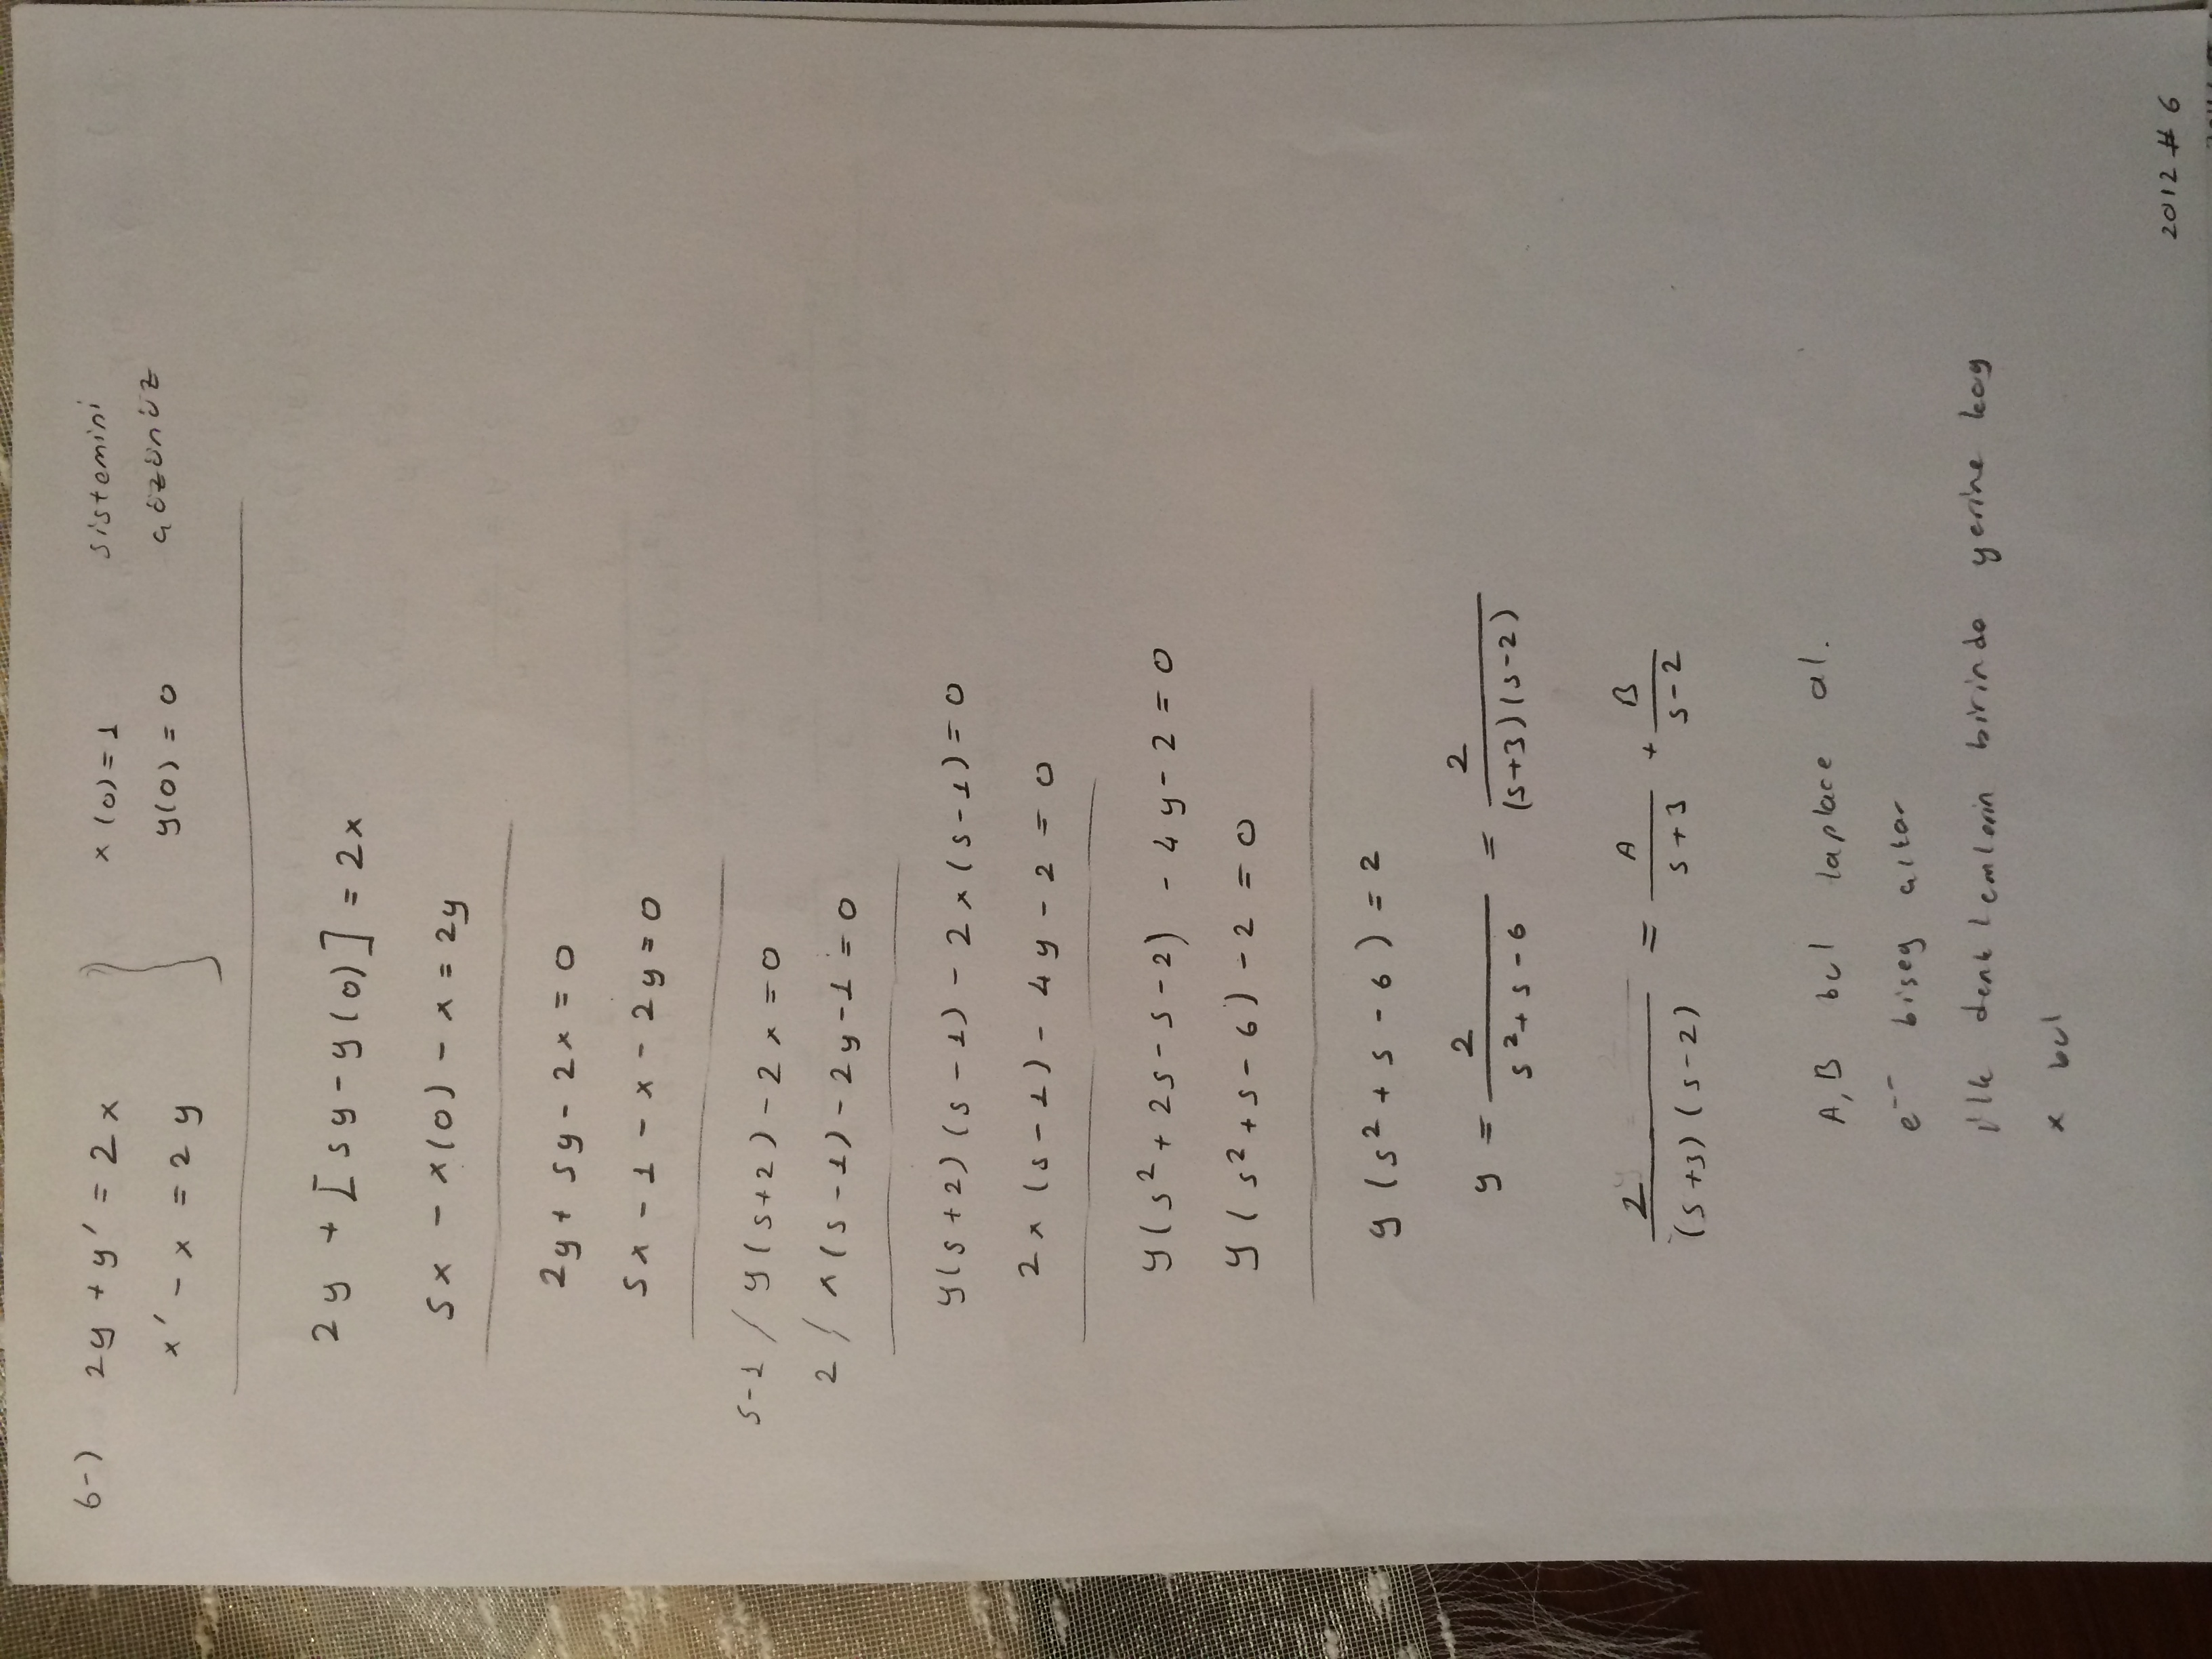 6-) 2y + y' = 2x } x(0)=1 sistemini
x' - x = 2y y(0) = 0 çözünüz
2y + [sy - y(0)] = 2x
sx - x(0) - x = 2y
2y + sy - 2x = 0
sx - 1 - x - 2y = 0
s-1 / y(s+2) - 2x = 0
2 / x(s-1) - 2y - 1 = 0
y(s+2)(s-1) - 2x(s-1) = 0
2x(s-1) - 4y - 2 = 0
y(s² + 2s - s - 2) - 4y - 2 = 0
y(s² + s - 6) - 2 = 0
y(s² + s - 6) = 2
y = 2/(s² + s - 6) = 2/((s+3)(s-2))
2/((s+3)(s-2)) = A/(s+3) + B/(s-2)
A, B bul laplace al.
e⁻⁻ bişey çıkar
ilk denklemlerin birinde yerine koy
x bul
2012 # 6